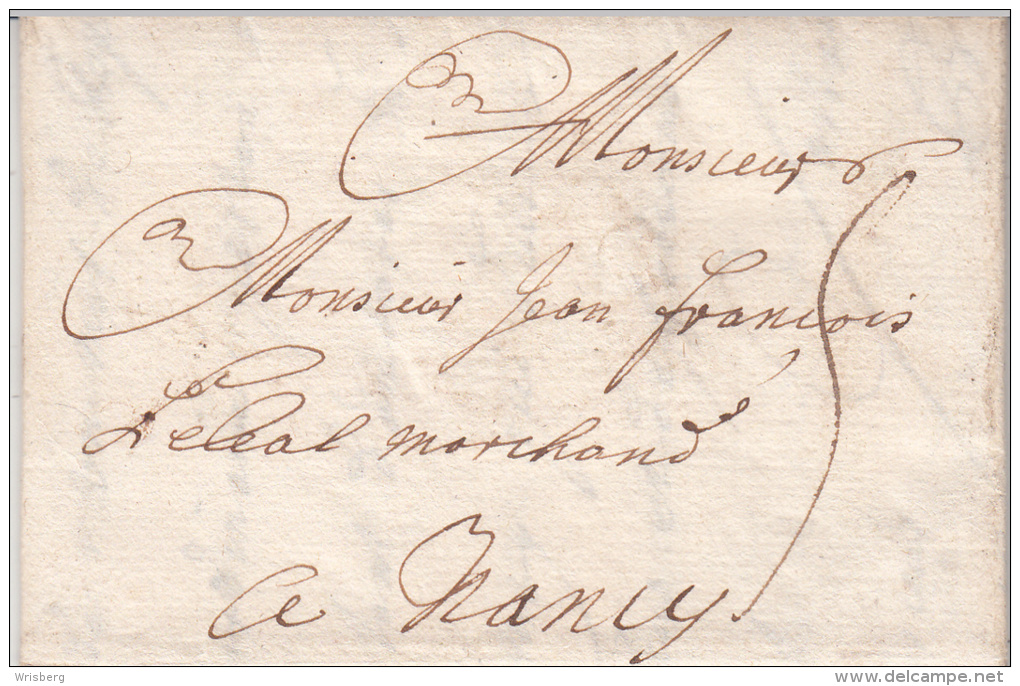 Monsieur
Monsieur Jean François
marchand
a Nancy
Wrisberg
delcampe.net